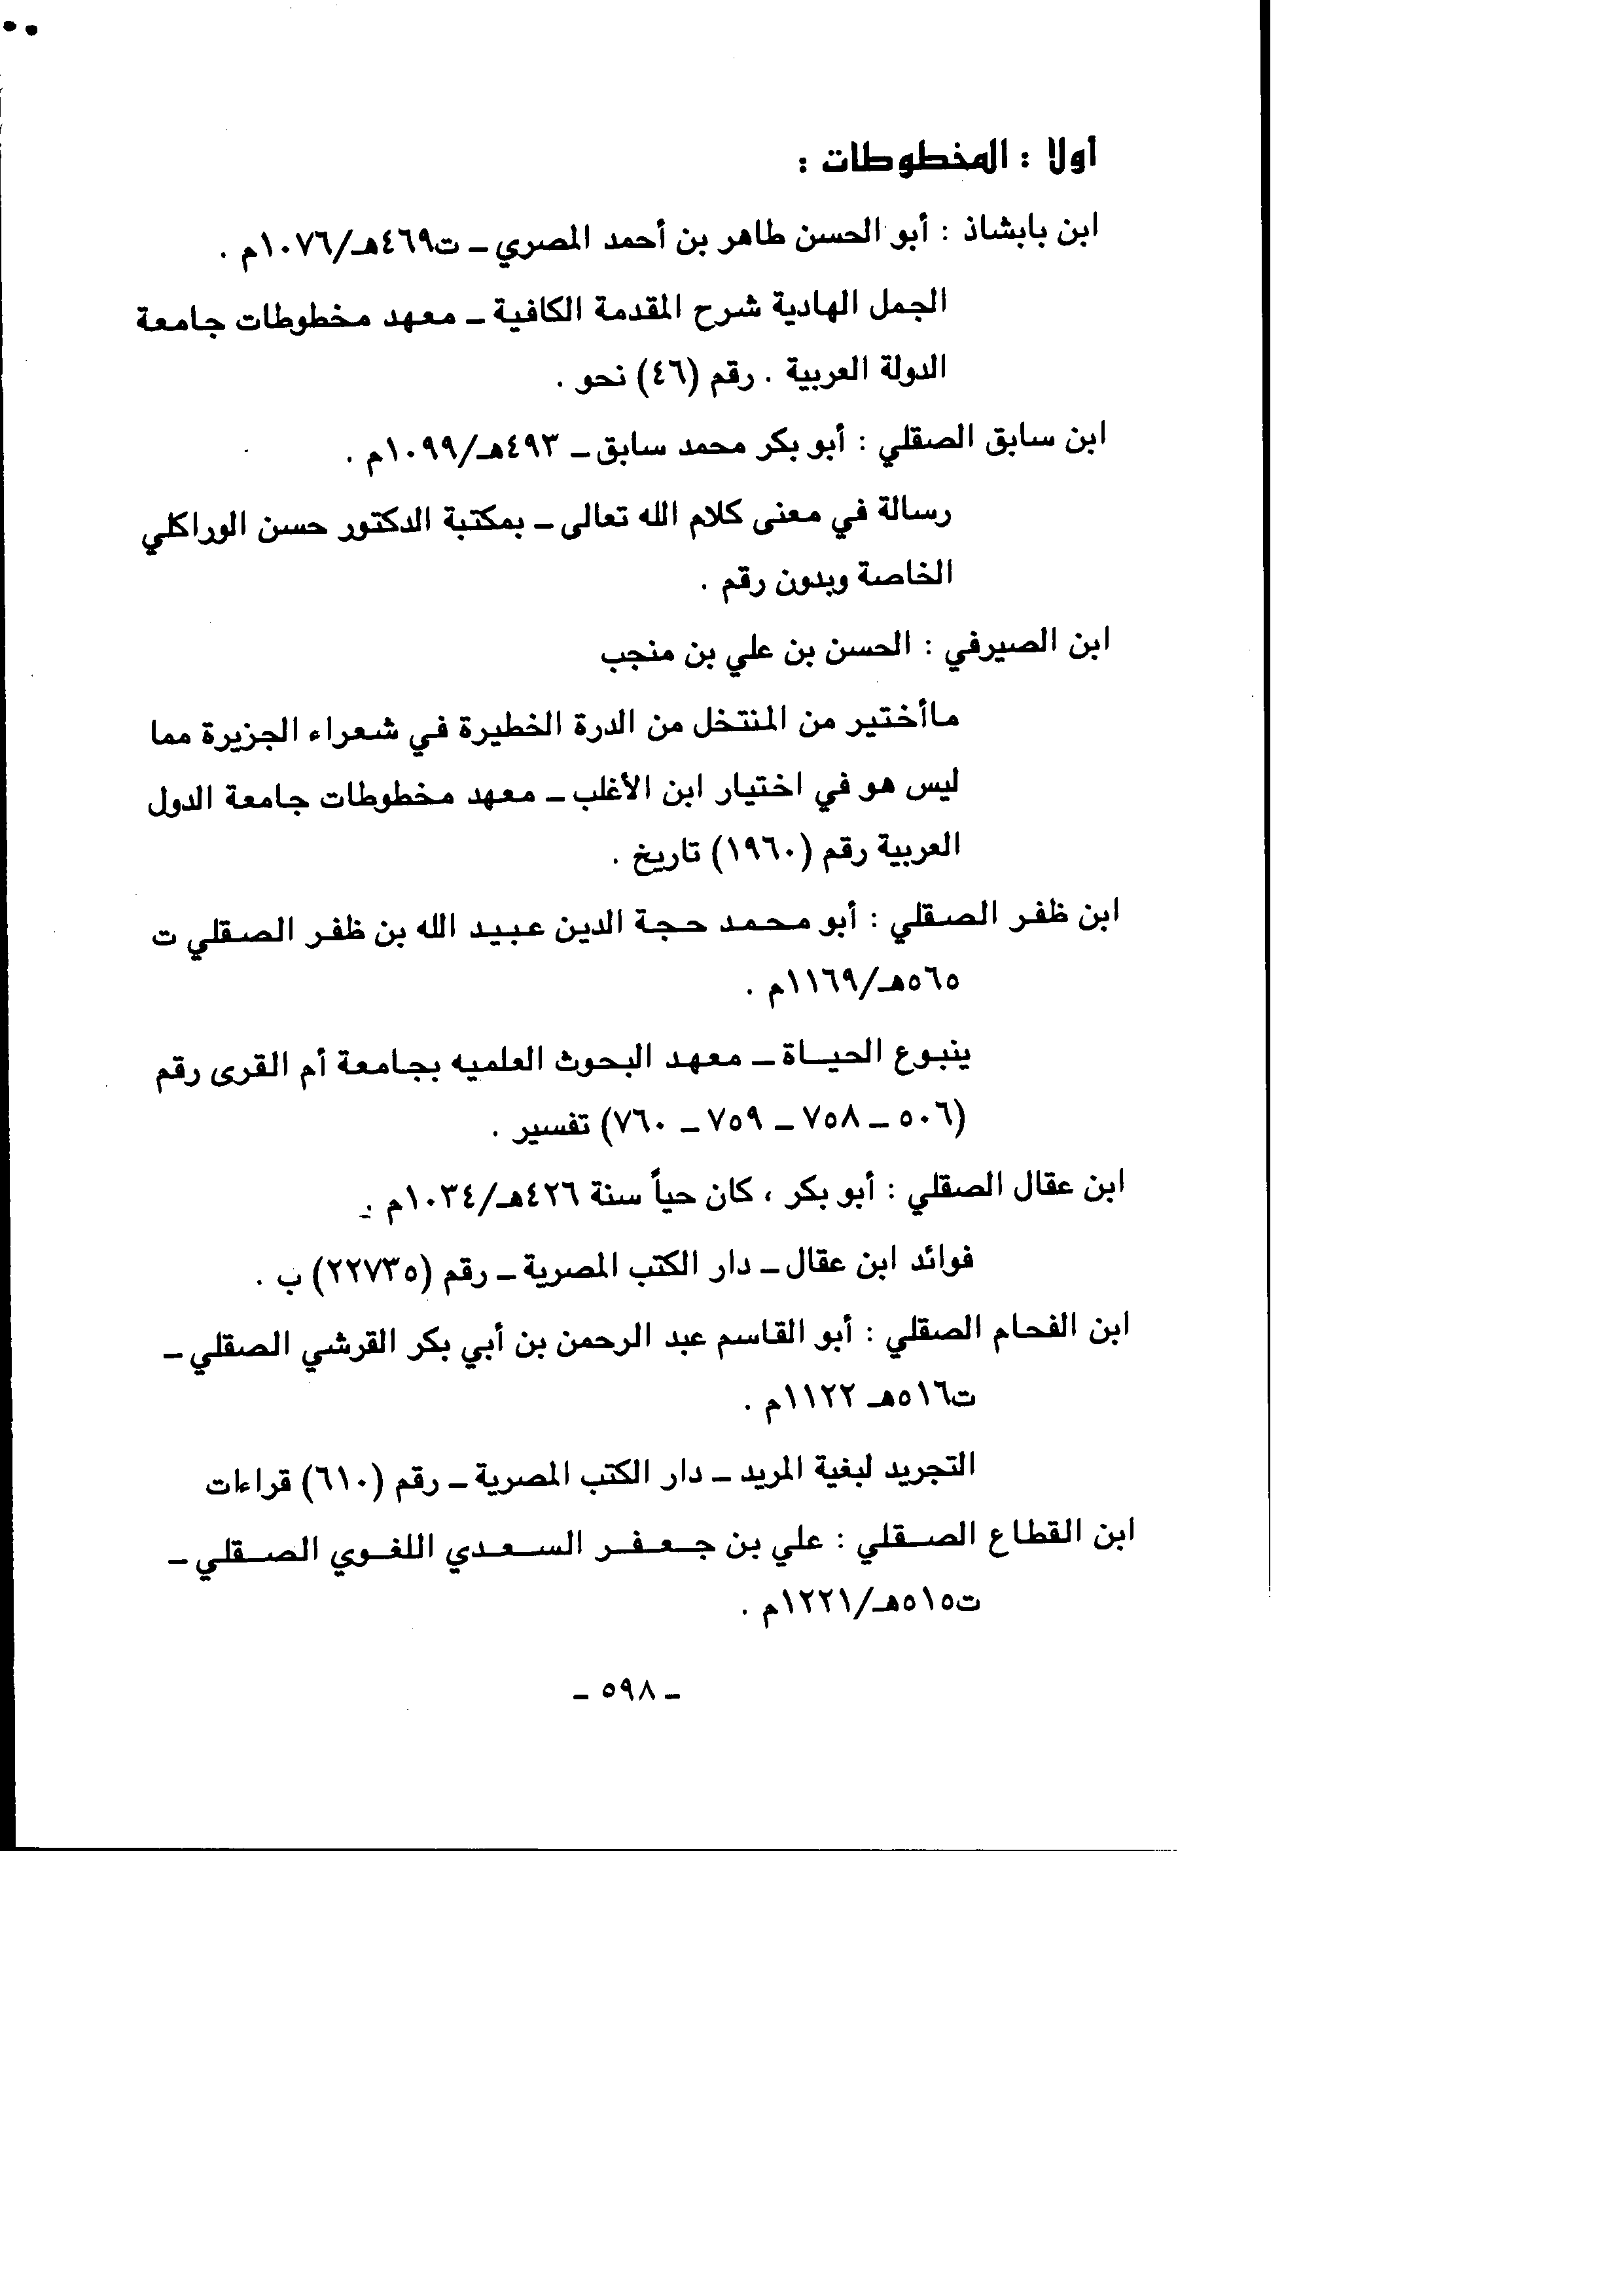 أولا : المخطوطات :
ابن بابشاذ : أبو الحسن طاهر بن أحمد المصري ـ ت٤٦٩هـ/١٠٧٦م .
الجمل الهادية شرح المقدمة الكافية ـ معهد مخطوطات جامعة
الدولة العربية . رقم (٤٦) نحو .
ابن سابق الصقلي : أبو بكر محمد سابق ـ ٤٩٣هـ/١٠٩٩م .
رسالة في معنى كلام الله تعالى ـ بمكتبة الدكتور حسن الوراكلي
الخاصة وبدون رقم .
ابن الصيرفي : الحسن بن علي بن منجب
ماأختير من المنتخل من الدرة الخطيرة في شعراء الجزيرة مما
ليس هو في اختيار ابن الأغلب ـ معهد مخطوطات جامعة الدول
العربية رقم (١٩٦٠) تاريخ .
ابن ظفر الصقلي : أبو محمد حجة الدين عبيد الله بن ظفر الصقلي ت
٥٦٥هـ/١١٦٩م .
ينبوع الحياة ـ معهد البحوث العلميه بجامعة أم القرى رقم
(٥٠٦ ـ ٧٥٨ ـ ٧٥٩ ـ ٧٦٠) تفسير .
ابن عقال الصقلي : أبو بكر ، كان حياً سنة ٤٢٦هـ/١٠٣٤م .
فوائد ابن عقال ـ دار الكتب المصرية ـ رقم (٢٢٧٣٥) ب .
ابن الفحام الصقلي : أبو القاسم عبد الرحمن بن أبي بكر القرشي الصقلي ـ
ت٥١٦هـ ١١٢٢م .
التجريد لبغية المريد ـ دار الكتب المصرية ـ رقم (٦١٠) قراءات
ابن القطاع الصقلي : علي بن جعفر السعدي اللغوي الصقلي ـ
ت٥١٥هـ/١٢٢١م .
ـ ٥٩٨ ـ